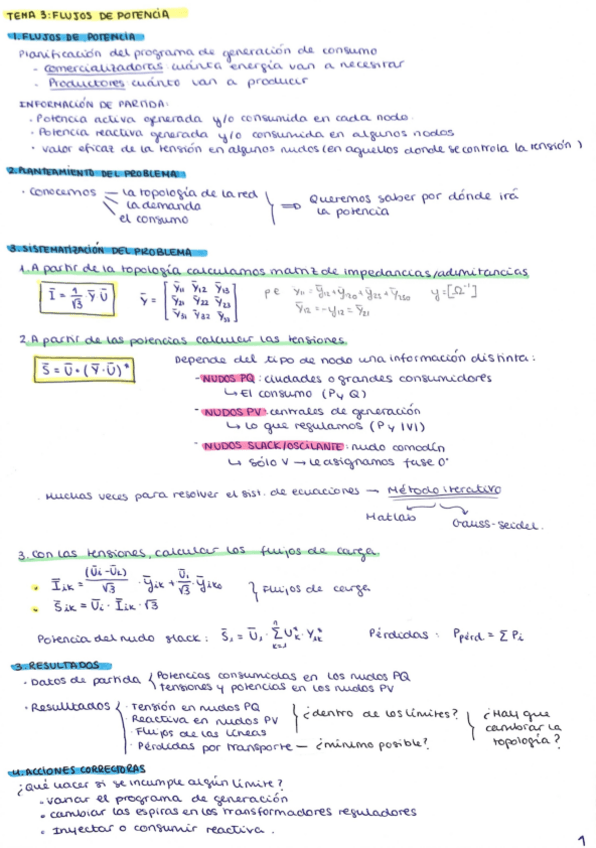 TEMA 3: FLUJOS DE POTENCIA
1. FLUJOS DE POTENCIA
Planificación del programa de generación de consumo
- Comercializadoras cuánta energía van a necesitar
- Productores cuánto van a producir
INFORMACIÓN DE PARTIDA:
· Potencia activa generada y/o consumida en cada nodo.
· Potencia reactiva generada y/o consumida en algunos nodos
· valor eficaz de la tensión en algunos nudos (en aquellos donde se controla la tensión)
2. PLANTEAMIENTO DEL PROBLEMA
· Conocemos — la topología de la red
la demanda
el consumo
⇒ Queremos saber por dónde irá la potencia
3. SISTEMATIZACIÓN DEL PROBLEMA
1. A partir de la topología calculamos matriz de impedancias/admitancias
Ī = 1/√3 · Ȳ Ū
2. A partir de las potencias calcular las tensiones.
S̄ = Ū · (Ȳ · Ū)*
Depende del tipo de nodo una información distinta:
- NUDOS PQ: ciudades o grandes consumidores
↳ El consumo (P y Q)
- NUDOS PV: centrales de generación
↳ lo que regulamos (P y |V|)
- NUDOS SLACK/OSCILANTE: nudo comodín
↳ Sólo V → le asignamos fase 0°
. Muchas veces para resolver el sist. de ecuaciones → Método iterativo
Matlab
Gauss-Seidel.
3. Con las tensiones, calcular los flujos de carga
· Īik = (Ūi-Ūk)/√3 · ȳik + Ūi/√3 · ȳiko
· S̄ik = Ūi · Īik · √3
} Flujos de carga
Potencia del nudo slack:
Pérdidas: Ppérd. = Σ Pi
3. RESULTADOS
· Datos de partida { Potencias consumidas en los nudos PQ
tensiones y potencias en los nudos PV
· Resultados { · Tensión en nudos PQ
· Reactiva en nudos PV
· Flujos de las líneas
· Pérdidas por transporte — ¿mínimo posible?
¿dentro de los límites?
¿Hay que cambiar la topología?
4. ACCIONES CORRECTORAS
¿Qué hacer si se incumple algún límite?
· variar el programa de generación
· cambiar las espiras en los transformadores reguladores
· Inyectar o consumir reactiva.
1